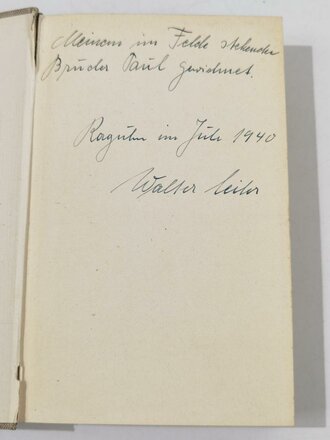 Meinem im Felde stehenden
Bruder Paul gewidmet.
Raguhn im Juli 1940
Walter